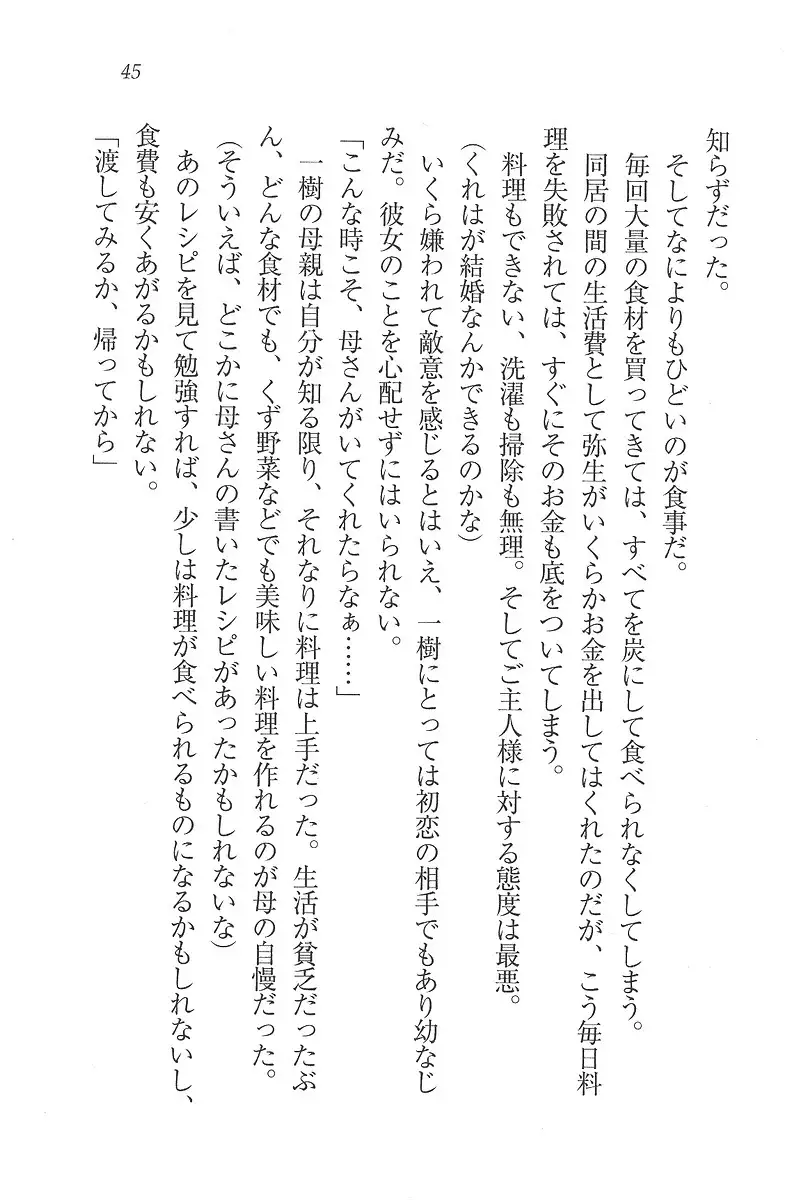 45
知らずだった。
　そしてなによりもひどいのが食事だ。
　毎回大量の食材を買ってきては、すべてを炭にして食べられなくしてしまう。
　同居の間の生活費として弥生がいくらかお金を出してはくれたのだが、こう毎日料
理を失敗されては、すぐにそのお金も底をついてしまう。
　料理もできない、洗濯も掃除も無理。そしてご主人様に対する態度は最悪。
（くれはが結婚なんかできるのかな）
　いくら嫌われて敵意を感じるとはいえ、一樹にとっては初恋の相手でもあり幼なじ
みだ。彼女のことを心配せずにはいられない。
「こんな時こそ、母さんがいてくれたらなぁ……」
　一樹の母親は自分が知る限り、それなりに料理は上手だった。生活が貧乏だったぶ
ん、どんな食材でも、くず野菜などでも美味しい料理を作れるのが母の自慢だった。
（そういえば、どこかに母さんの書いたレシピがあったかもしれないな）
　あのレシピを見て勉強すれば、少しは料理が食べられるものになるかもしれないし、
食費も安くあがるかもしれない。
「渡してみるか、帰ってから」